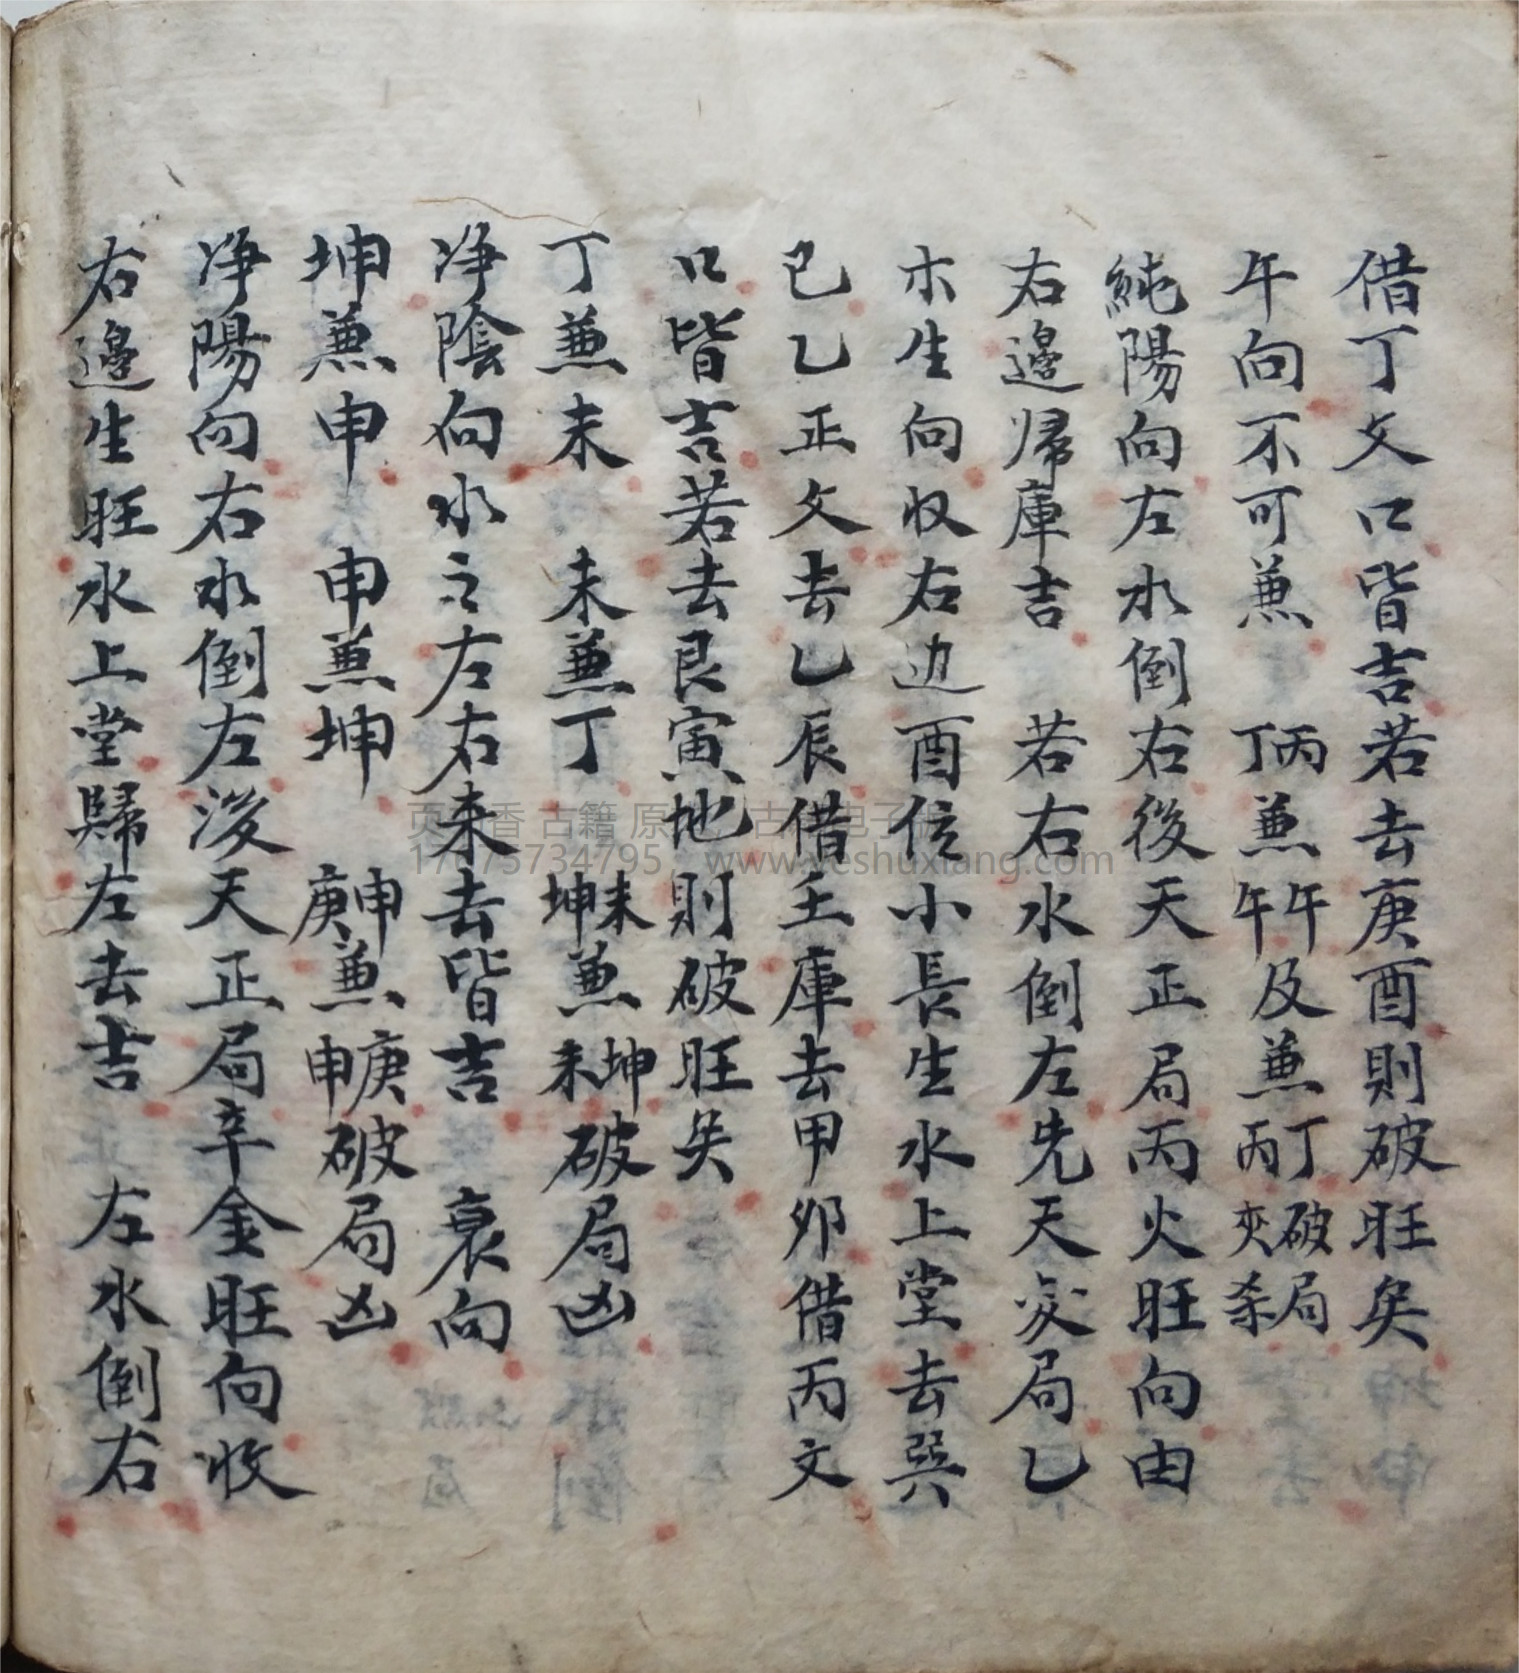 借丁文口皆吉若去庚酉則破旺矣
午向不可兼 丙兼午及兼丁破局
丁 午 丙夾杀
純陽向左水倒右後天正局丙火旺向由
右邊歸庫吉 若右水倒左先天爻局乙
木生向收右边酉位小長生水上堂去巽
巳乙正文去乙辰借壬庫去甲卯借丙文
口皆吉若去艮寅地則破旺矣
丁兼未 未兼丁 未兼坤破局凶
坤 未
净陰向水之左右来去皆吉 衰向
坤兼申 申兼坤 申兼庚破局凶
庚 申
净陽向右水倒左後天正局辛金旺向收
右邊生旺水上堂歸左去吉 左水倒右
页书香 古籍 原 古 电子
17075734795 www.yeshuxiang.com